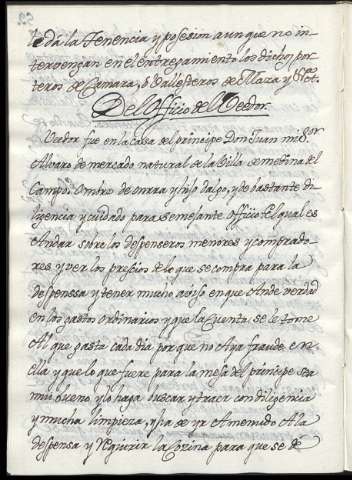 le dá la Tenencia y posesion aun que no in
tervengan en el entregamiento los dichos por
teros de Camara, o Vallesteros de Maza y &ct.
Del Officio del Veedor.
Veedor fue en la cassa del principe Don Juan mi Sor
Alvaro de mercado natural de la Villa de medina del
Campo: Ombre de onrra y hijo dalgo, y de bastante di
ligencia y cuidado para semejante officio el qual es
Andar sobre los despenseros menores y comprado
res y ver los presçios de lo que se compra para la
despenssa y tener mucho aviso en que Ande verdad
en los gastos ordinarios y que la Cuenta se le torne
Al que gasta cada dia por que no Aya fraude en
ella y que lo que fuere para la mesa del principe sea
mui bueno, y lo haga buscar y traer con diligencia
y mucha limpieza, y ha de yr Amenudo A la
despensa y Requirir la Cozina para que se dé